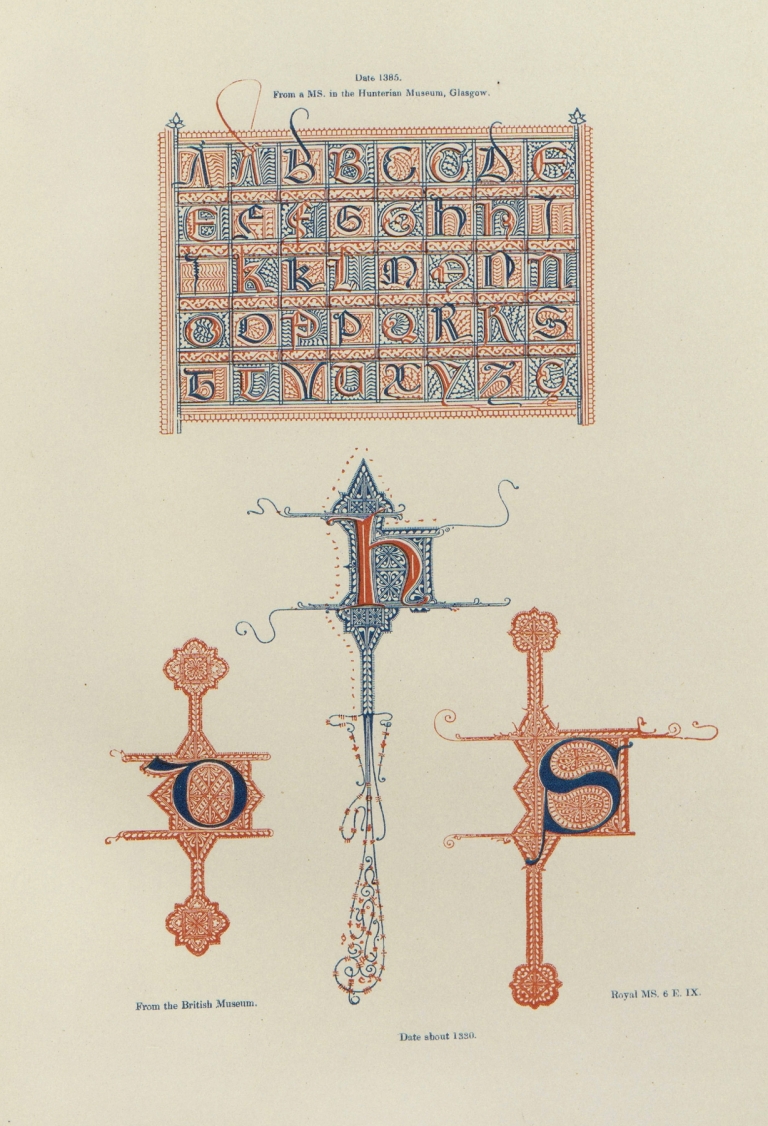 Date 1385.
From a MS. in the Hunterian Museum, Glasgow.
A A B B C C D E
E F f G G h h I
I K k L M M N N
O O P P Q R R S
T U V U X Y Z
h
D
S
From the British Museum.
Royal MS. 6 E. IX.
Date about 1330.